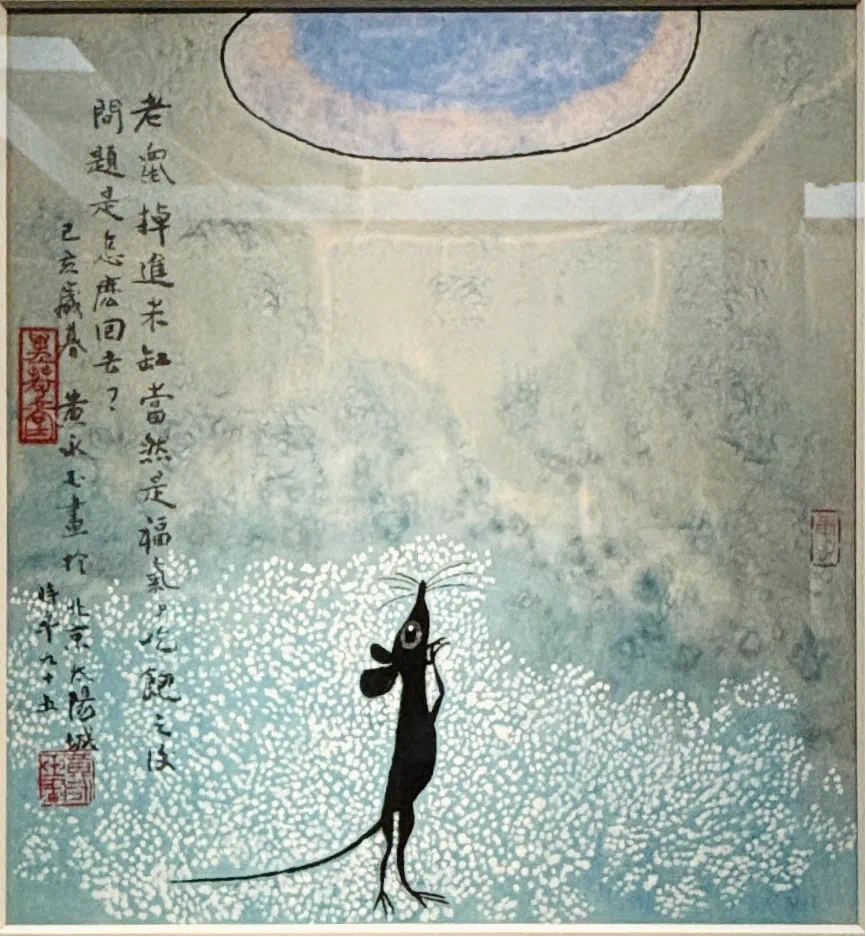 老鼠掉進米缸當然是福氣，吃飽之後
問題是怎麽回去？
己亥歲暮 黃永玉畫於北京太陽城
時年九十五